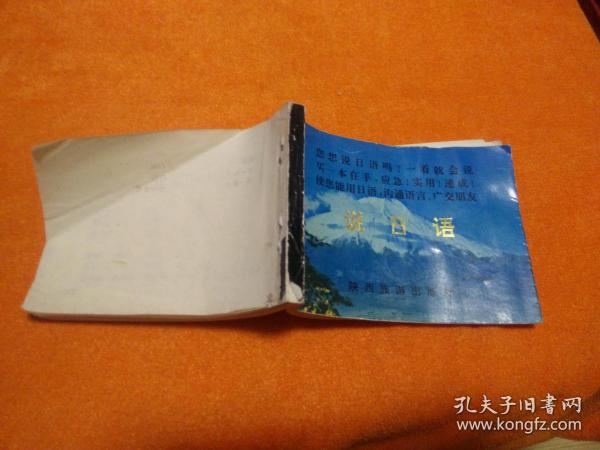 您想说日语吗?一看就会说
买一本在手,应急!实用!速成!
使您能用日语,沟通语言,广交朋友
说日语
陕西旅游出版社
孔夫子旧书网
www.kongfz.com